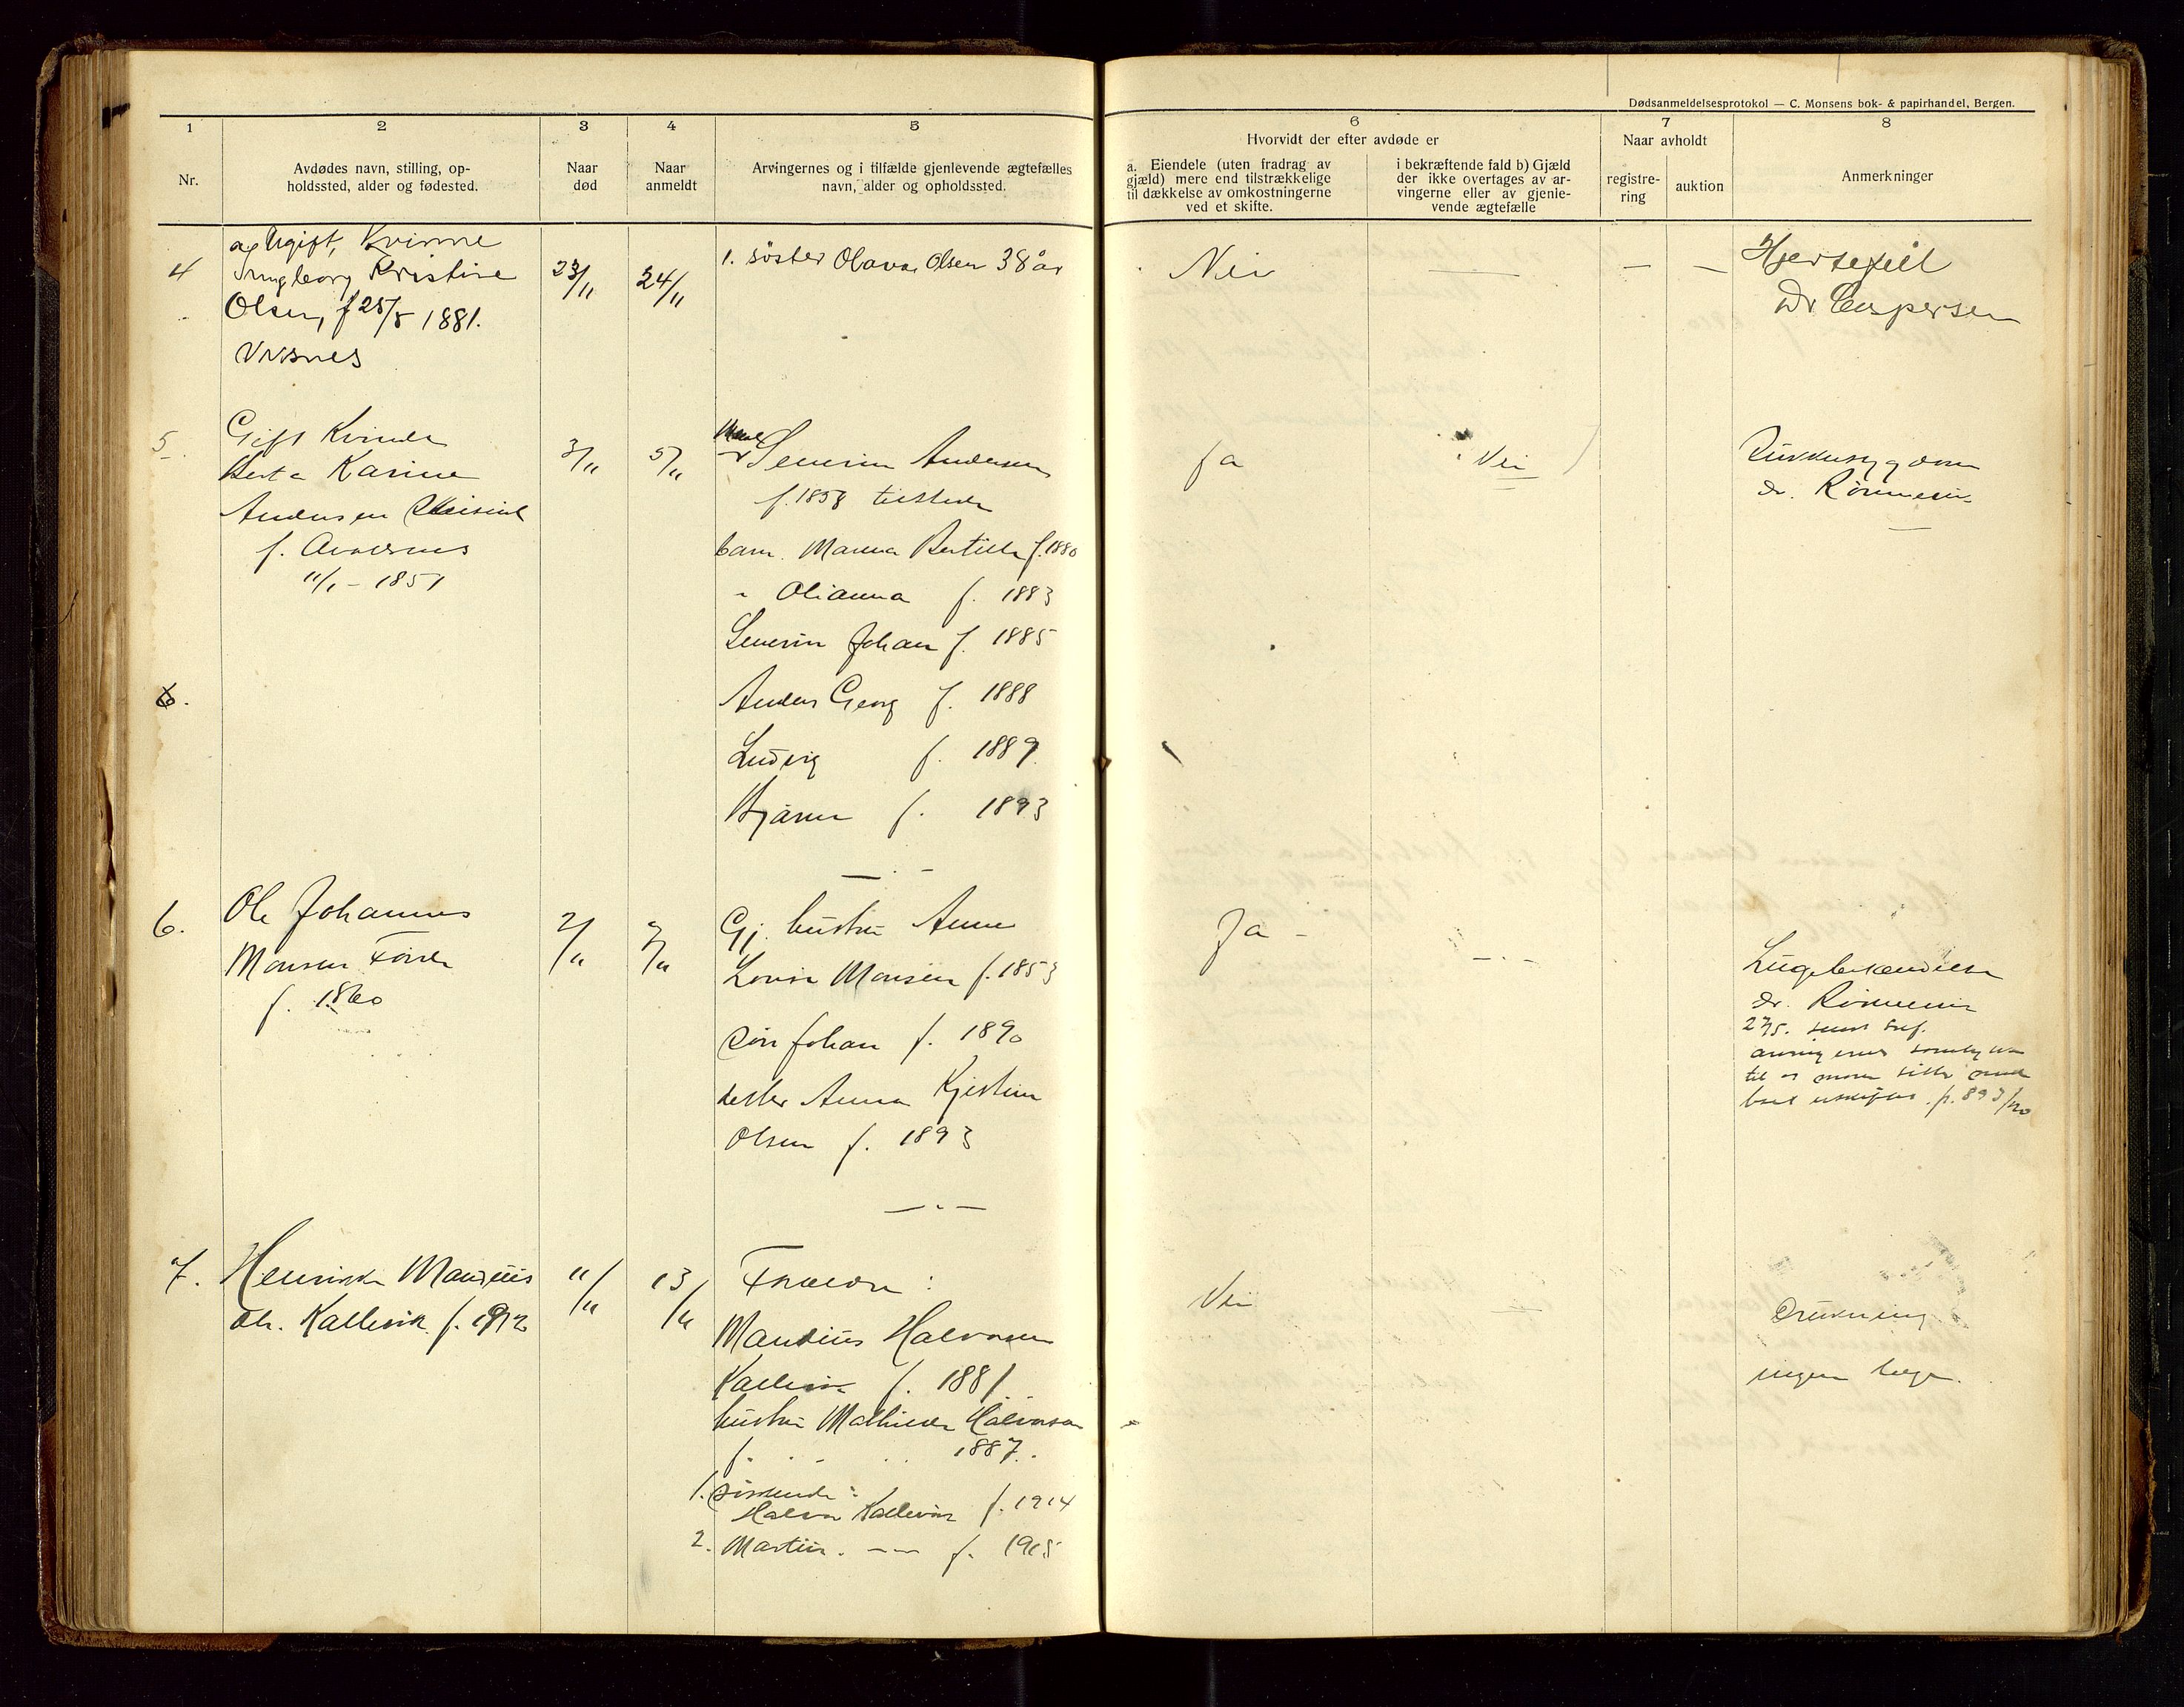 Dødsanmeldelsesprotokol — C. Monsens bok- & papirhandel, Bergen.
1
2
3
4
5
6
7
8
Nr.
Avdødes navn, stilling, op-
holdssted, alder og fødested.
Naar
død
Naar
anmeldt
Arvingernes og i tilfælde gjenlevende ægtefælles
navn, alder og opholdssted.
Hvorvidt der efter avdøde er
a. Eiendele (uten fradrag av
gjæld) mere end tilstrækkelige
til dækkelse av omkostningerne
ved et skifte.
i bekræftende fald b) Gjæld
der ikke overtages av ar-
vingerne eller av gjenle-
vende ægtefælle
Naar avholdt
registre-
ring
auktion
Anmerkninger
4
Ugift, Kvinne
Ingeborg Kristine
Olsen, f 25/8 1881.
Visnes
23/11
24/11
1. søster Olava Olsen 38 år
Nei
— — —
Hjertefeil
Dr Caspersen
5
Gift Kvinde
Berta Karine
Andersen
f. Andersens
11/1 - 1851
3/11
5/11
Severin Andersen
f. 1858 tilstede
barn. Manna Bertille f. 1880
" Olianna f. 1883
Severin Johan f. 1885
Anders Georg f. 1888
Ludvig f. 1889
Bjarne f. 1893
Ja
Nei
dr. Rønnevig
6.
6.
Ole Johannes
Monsen Førde
f. 1860
2/11
7/11
Gj. hustru Anne
Lovise Monsen f. 1853
søn Johan f. 1890
datter Anna Kjistine
Olsen f. 1893
Ja -
- . -
Lugebetændelse
dr. Rønnevig
27/5.
til
p. 893/20
7.
Henrik Mandius
Kallevik f. 1912
11/11
13/11
Forældre :
Mandius Halvorsen
Kallevik f. 1881
hustru Mathilde Halvorsen
f. 1887.
1. søskende :
Halvor Kallevik f. 1914
2. Martin. — f. 1915
Nei
Drukning
ingen læge.